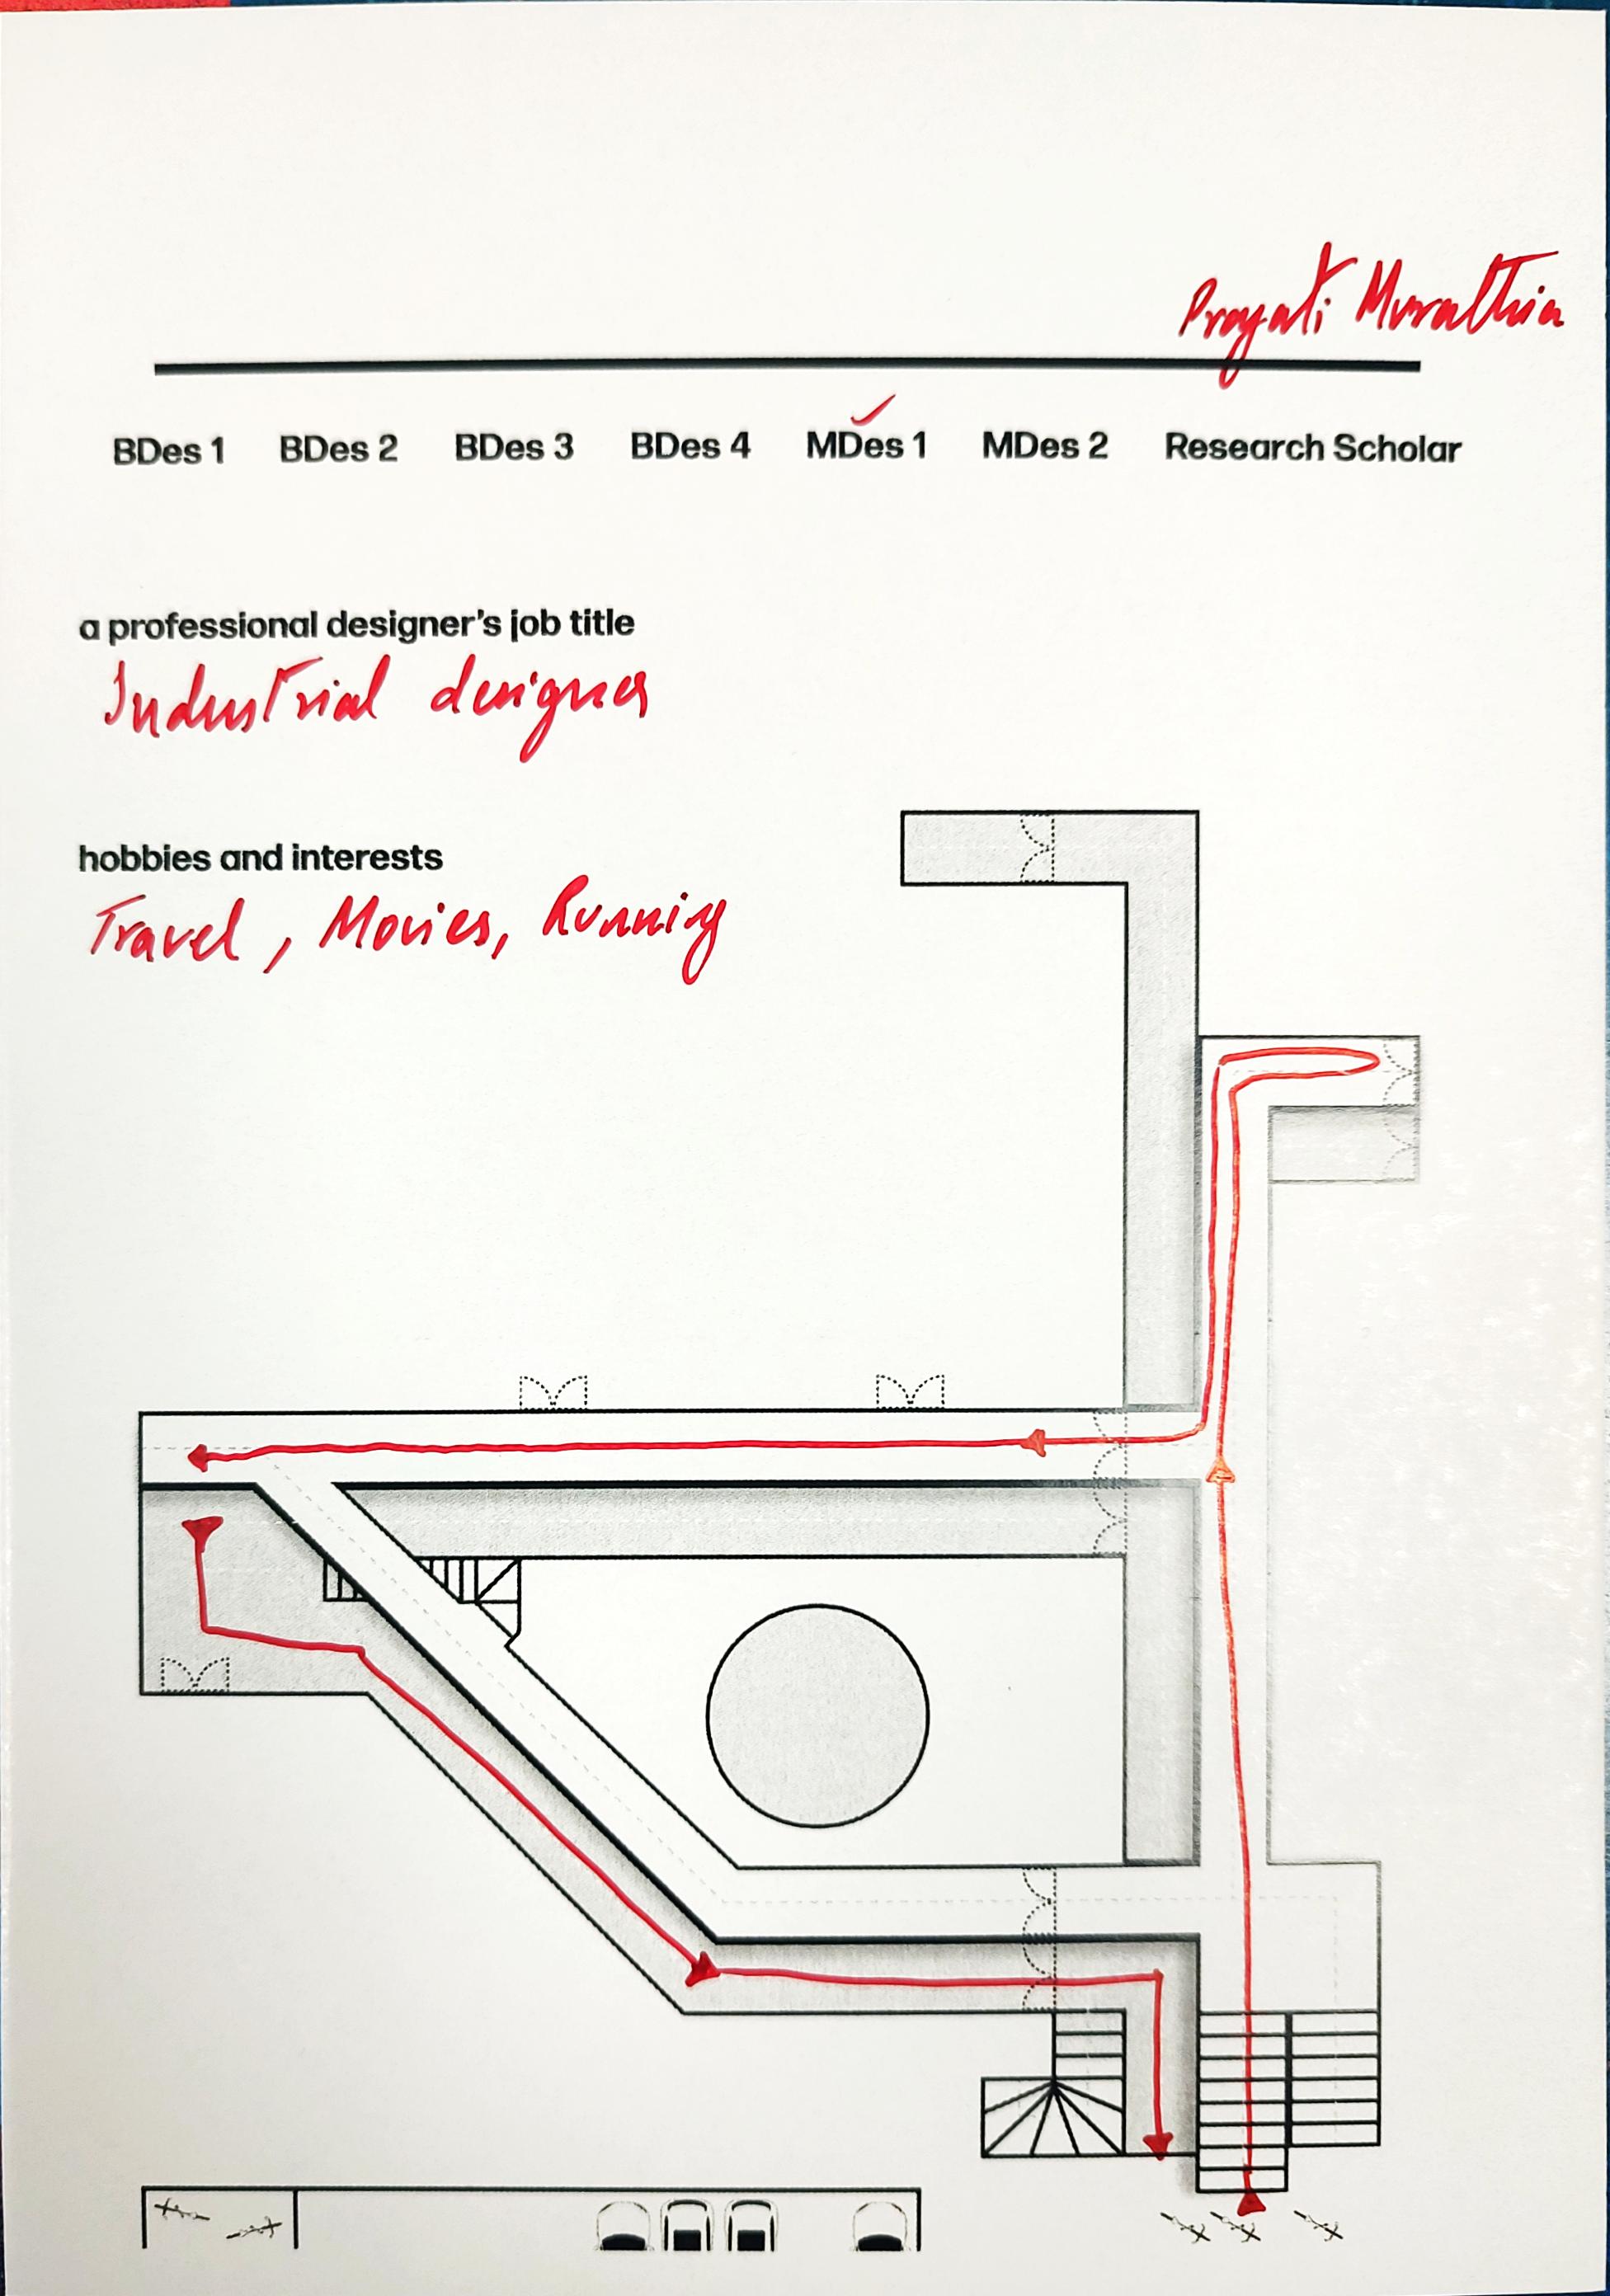 Pragati Murathia
BDes 1 BDes 2 BDes 3 BDes 4 MDes 1 MDes 2 Research Scholar
a professional designer's job title
Industrial designer
hobbies and interests
Travel, Movies, Running